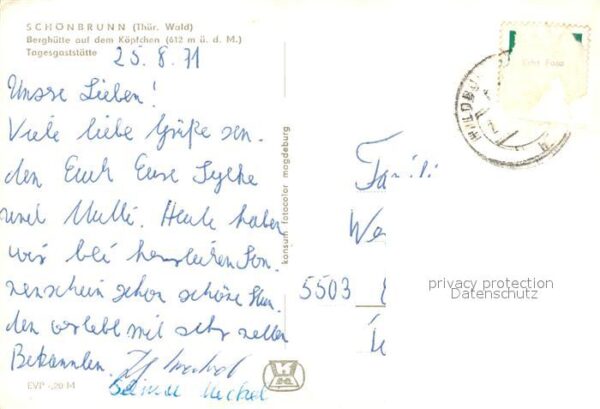 SCHÖNBRUNN (Thür. Wald)
Berghütte auf dem Köpfchen (612 m ü. d. M.)
Tagesgaststätte
25.8.71
Unsre Lieben!
Viele liebe Grüße sen-
den Euch Eure Sylke
und Mutti. Heute haben
wir bei herrlichem Son-
nenschein schon schöne Stun-
den verlebt mit sehr netten
Bekannten.
EVP -,20 M
konsum fotocolor magdeburg
Echt Foto
HILDBU
Famili
We
5503
privacy protection
Datenschutz